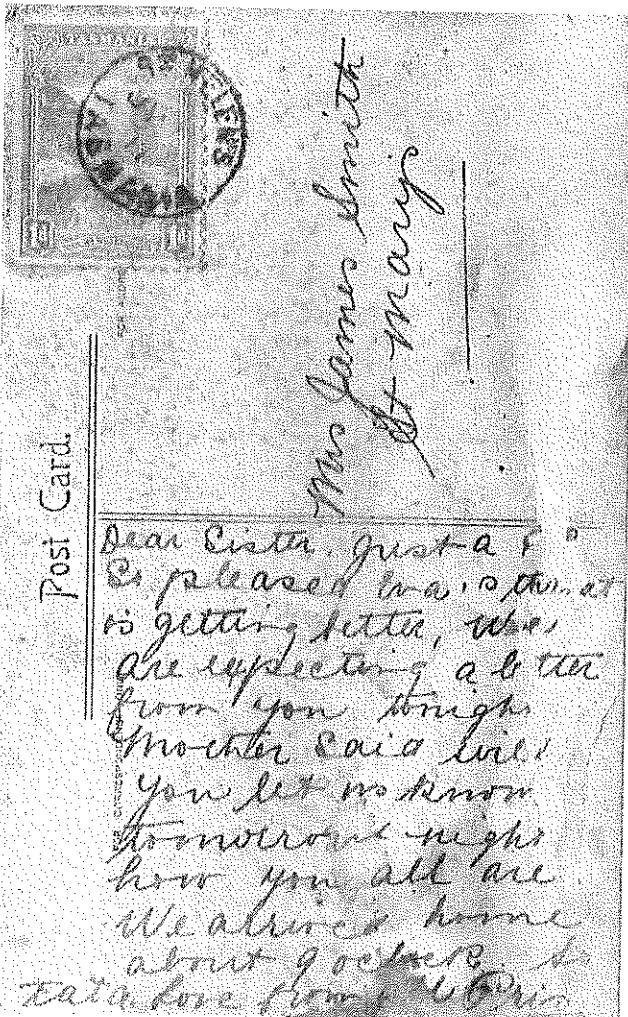 Post Card.
Mrs James Smith
St Marys
Dear Sister. Just a
So pleased Eva's throat
is getting better, We
are expecting a letter
from you tonight
Mother said will
you let us know
tomorrow night
how you all are.
We arrived home
about 9 oclock.
love from